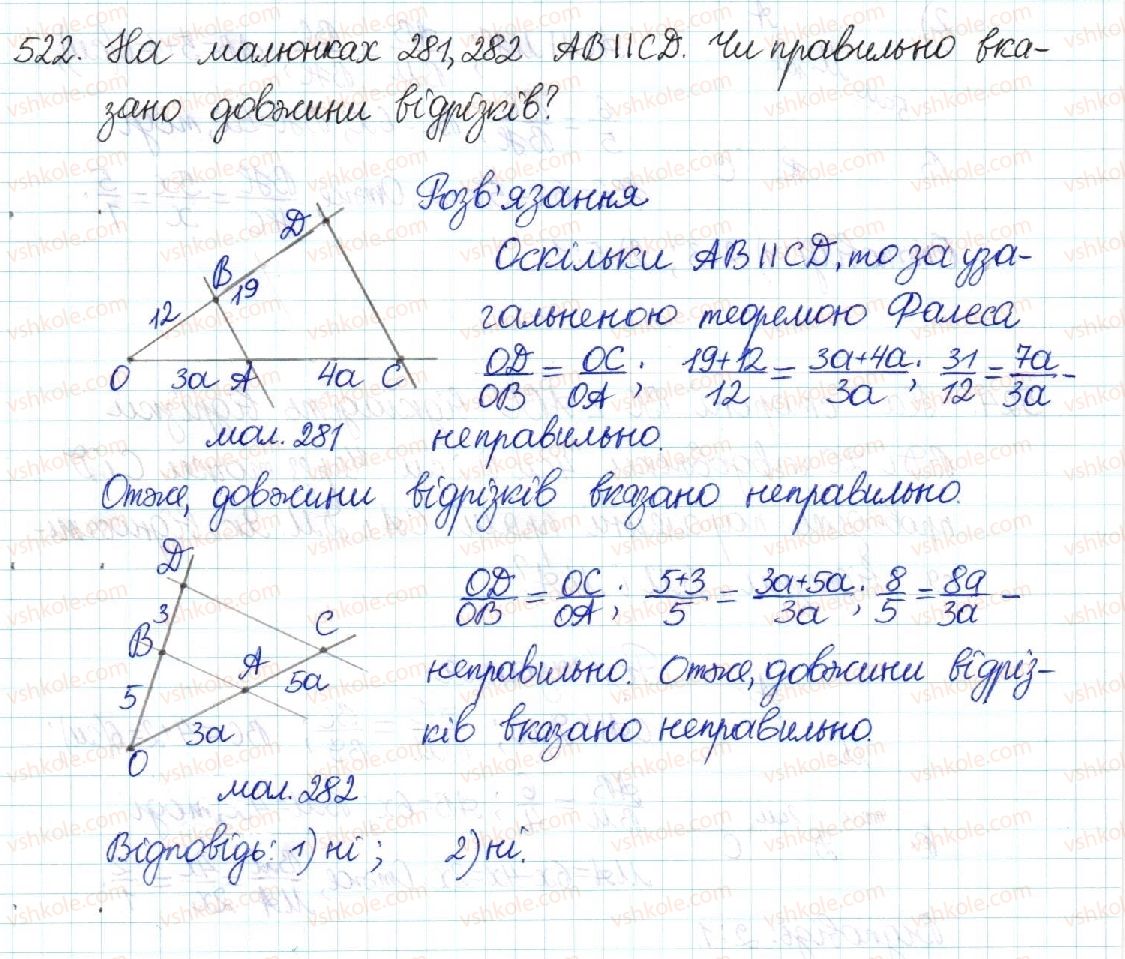 522. На малюнках 281, 282 AB||CD. Чи правильно вка-
зано довжини відрізків?
Розв'язання
D
B
12
19
O 3a A 4a C
мал. 281
Оскільки AB||CD, то за уза-
гальненою теоремою Фалеса
OD/OB = OC/OA; (19+12)/12 = (3a+4a)/3a; 31/12 = 7a/3a -
неправильно.
Отже, довжини відрізків вказано неправильно.
D
3
B
C
A
5
5a
3a
O
мал. 282
OD/OB = OC/OA; (5+3)/5 = (3a+5a)/3a; 8/5 = 8a/3a -
неправильно. Отже, довжини відріз-
ків вказано неправильно.
Відповідь: 1) ні; 2) ні.
vshkole.com